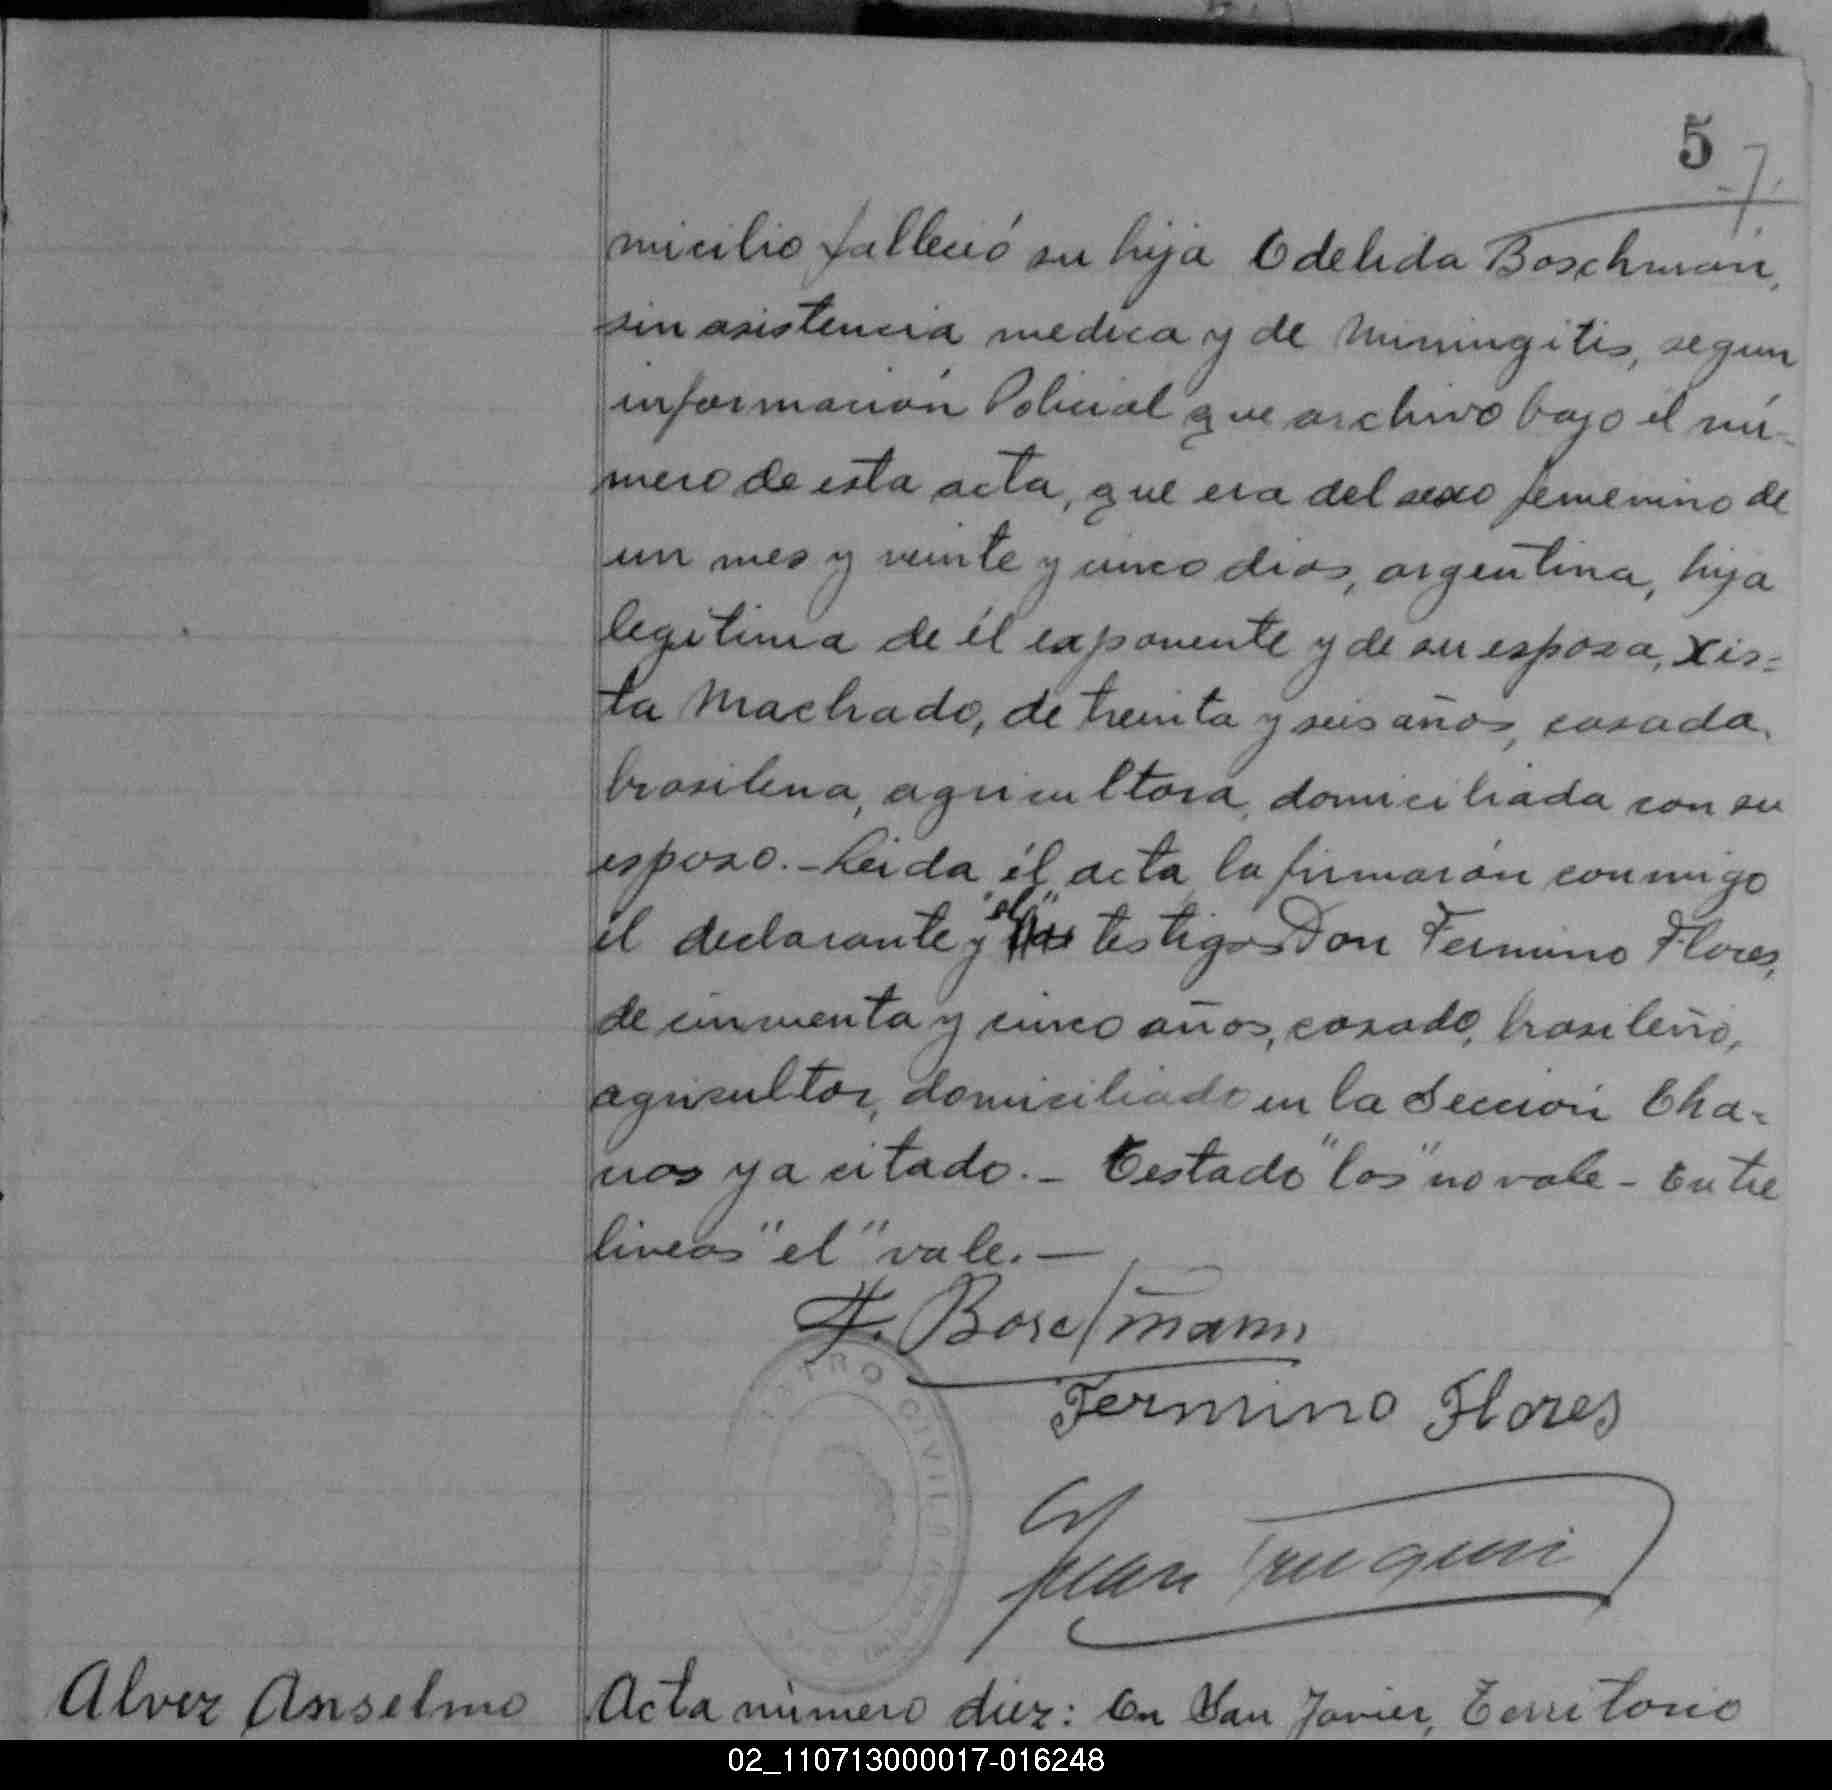 5
7.
micilio falleció su hija Odelida Boschman,
sin asistencia medica y de Miningitis, segun
información Policial que archivo bajo él nú-
mero de esta acta, que era del sexo femenino de
un mes y veinte y cinco dias, argentina, hija
legitima de él exponente y de su esposa, Xis=
ta Machado, de treinta y seis años, casada,
brasilena, agricultora, domiciliada con su
esposo.- Leida él acta la firmarón conmigo
"el"
él declarante y los testigos Don Fermino Flores,
de cincuenta y cinco años, casado, brasileño,
agricultor, domiciliado en la Sección Cha-
cras ya citado.- Testado "los" no vale - Entre
lineas "el" vale.-
Boschmann
Fermino Flores
Juan
REGISTRO CIVIL
Alvez Anselmo
Acta número diez: En San Javier, Territorio
02_110713000017-016248